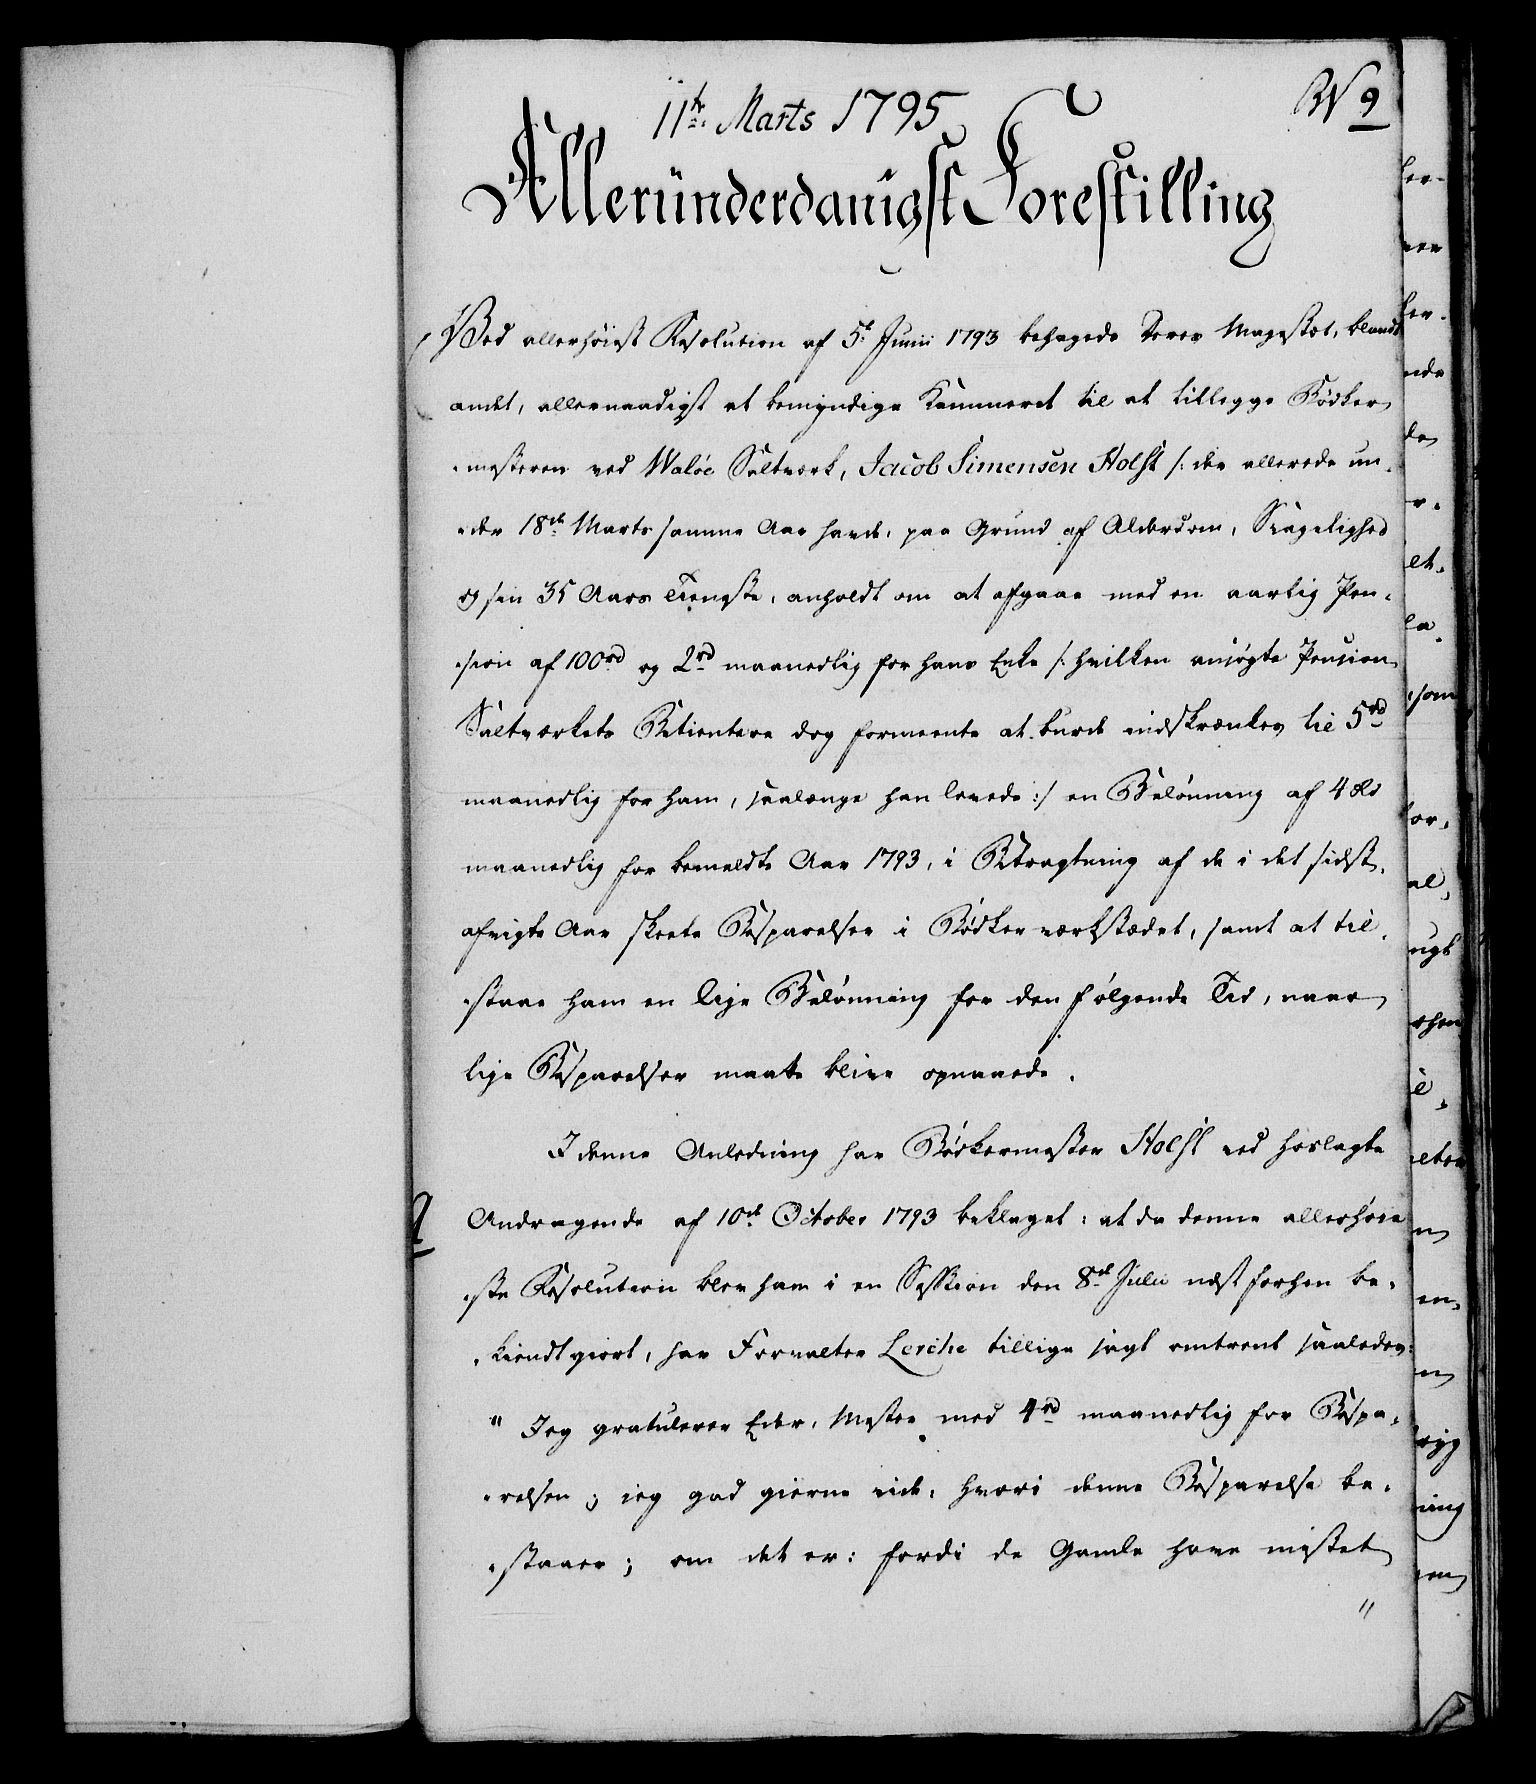 11te. Marts 1795
N 9
Alleründerdanigst Forestilling
Ved allerhöiest Resolution af 5t Junii 1793 behagede Deres Majestæt, blandt
andet, allernaadigst at bemyndige Kammeret til at tillegge Bödker
-mesteren ved Waløe Saltværk, Jacob Simensen Holst /: der allerede un-
-der 18de Marts samme Aar havde, paa Grund af Alderdom, Svagelighed
og sin 35 Aars Tieneste, anholdt om at afgaae med en aarlig Pen-
-sion af 100rd og 2rd maanedlig for hans Enke /: hvilken ansøgte Pension
Saltværkets Betientere dog formeente at burde indskrænkes til 5rd
maanedlig for ham, saalænge han levede :/ en Belönning af 4 Rd
maanedlig for bemeldte Aar 1793, i Betragtning af de i det sidst-
afvigte Aar skeete Besparelser i Bödkerværkstædet, samt at til-
-staae ham en lige Belönning for den fölgende Tid, naar
lige Besparelser maatte blive opnaaede.
I denne Anledning har Bödkermester Holst ved hoslagte
Andragende af 10de October 1793 beklaget: at da denne allerhöie
-ste Resolution blev ham i en Session den 8de Julii næst forhen be-
-kiendtgiort, har Forvalter Lerche tillige sagt omtrent saaledes:
" Jeg gratulerer Eder, Mester, med 4rd maanedlig for Bespa-
-relsen; jeg gad gierne vide, hvori denne Besparelse be-
-staaer; om det er: fordi de Gamle have mistet
"